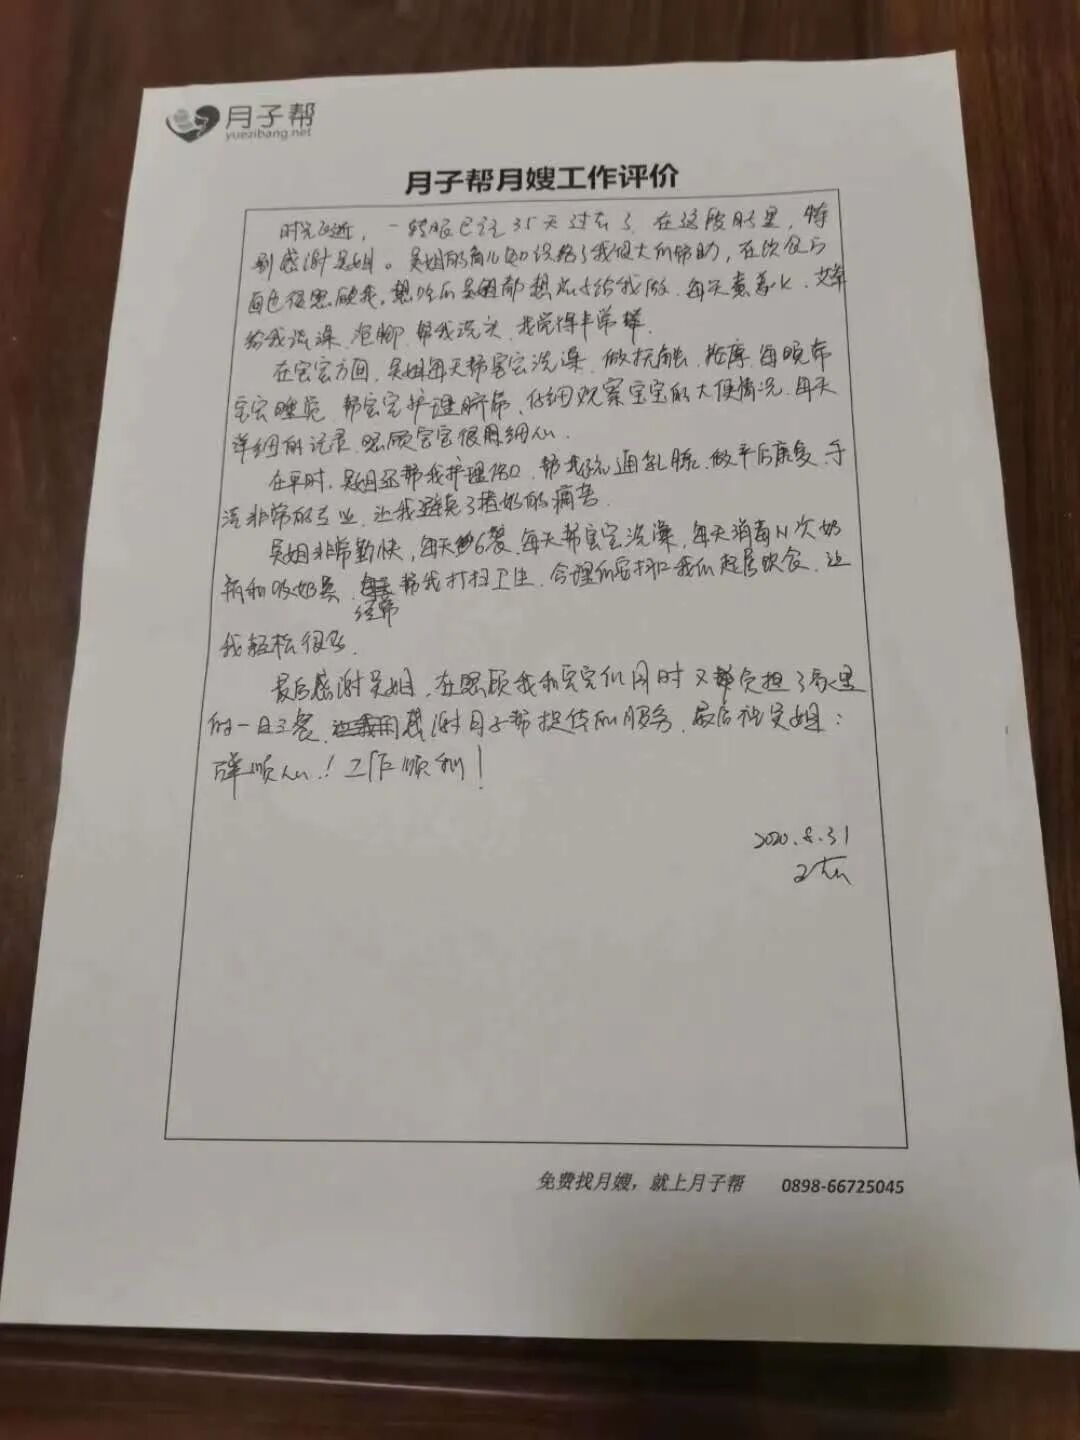 月子帮
yuezibang.net
月子帮月嫂工作评价
时光飞逝，一转眼已经35天过去了，在这段时里，特
别感谢吴姐。吴姐的育儿知识给了我很大的帮助，在饮食方
面也很照顾我，想吃的吴姐都想办法给我做，每天煮姜水、艾草
给我洗澡、泡脚、帮我洗头，我觉得非常棒。
在宝宝方面，吴姐每天帮宝宝洗澡、做抚触、按摩，每晚带
宝宝睡觉，帮宝宝护理脐带、仔细观察宝宝的大便情况，每天
详细的记录，照顾宝宝很用细心。
在平时，吴姐还帮我护理伤口，帮我疏通乳腺、做产后康复，手
法非常的专业，让我避免了堵奶的痛苦。
吴姐非常勤快，每天6餐，每天帮宝宝洗澡，每天消毒N次奶
瓶和吸奶器，经常帮我打扫卫生，合理的安排我的起居饮食，让
我轻松很多。
最后感谢吴姐，在照顾我和宝宝们同时又负担了家里
的一日三餐，感谢月子帮提供的服务，最后祝吴姐：
顺心！工作顺利！
2020.8.31
免费找月嫂，就上月子帮 0898-66725045